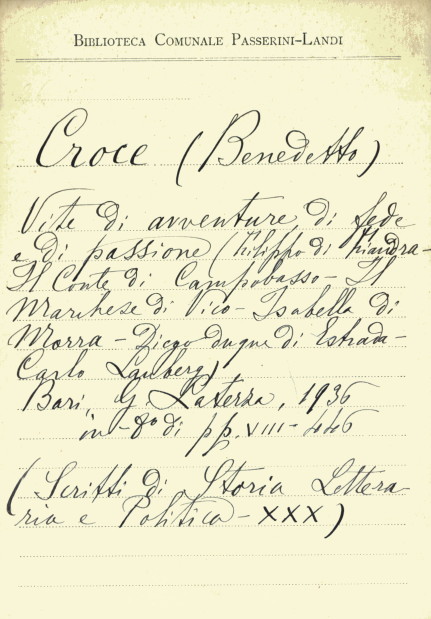 BIBLIOTECA COMUNALE PASSERINI-LANDI
Croce (Benedetto)
Vite di avventure di fede
e di passione (Filippo di Fiandra-
Il Conte di Campobasso - Il
Marchese di Vico - Isabella di
Morra - Diego duque di Estrada -
Carlo Lauberg)
Bari, G. Laterza, 1936
in-8º di pp. VIII-446
(Scritti di Storia Lettera-
ria e Politica - XXX)